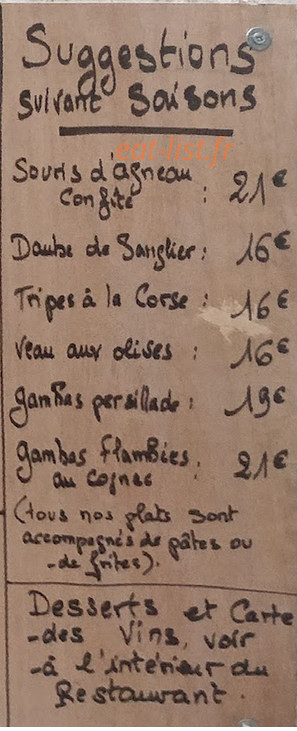 Suggestions
suivant Saisons
eat-list.fr
Souris d'agneau
Confite : 21€
Daube de Sanglier : 16€
Tripes à la Corse : 16€
Veau aux olives : 16€
gambas persillade : 19€
gambas Flambées
au Cognac : 21€
(tous nos plats sont
accompagnés de pâtes ou
-de frites).
Desserts et Carte
-des Vins, voir
-à l'intérieur du
Restaurant.